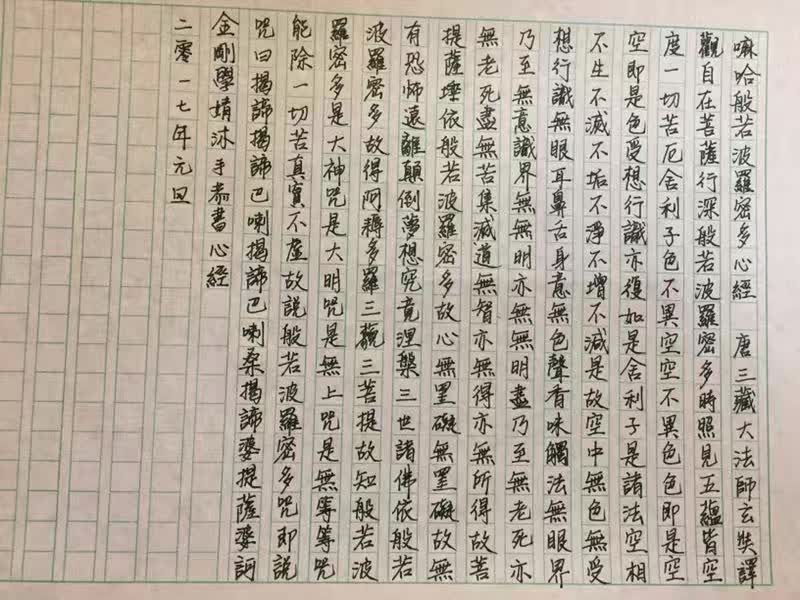 嘛哈般若波羅密多心經 唐三藏大法師玄奘譯
觀自在菩薩行深般若波羅密多時照見五蘊皆空
度一切苦厄舍利子色不異空空不異色色即是空
空即是色受想行識亦復如是舍利子是諸法空相
不生不滅不垢不淨不增不減是故空中無色無受
想行識無眼耳鼻舌身意無色聲香味觸法無眼界
乃至無意識界無無明亦無無明盡乃至無老死亦
無老死盡無苦集滅道無智亦無得亦無所得故菩
提薩埵依般若波羅密多故心無罣礙無罣礙故無
有恐怖遠離顛倒夢想究竟涅槃三世諸佛依般若
波羅密多故得阿耨多羅三藐三菩提故知般若波
羅密多是大神咒是大明咒是無上咒是無等等咒
能除一切苦真實不虛故說般若波羅密多咒即說
咒曰揭諦揭諦巴喇揭諦巴喇桑揭諦婆提薩婆訶
金剛學婧沐手恭書心經
二零一七年元日